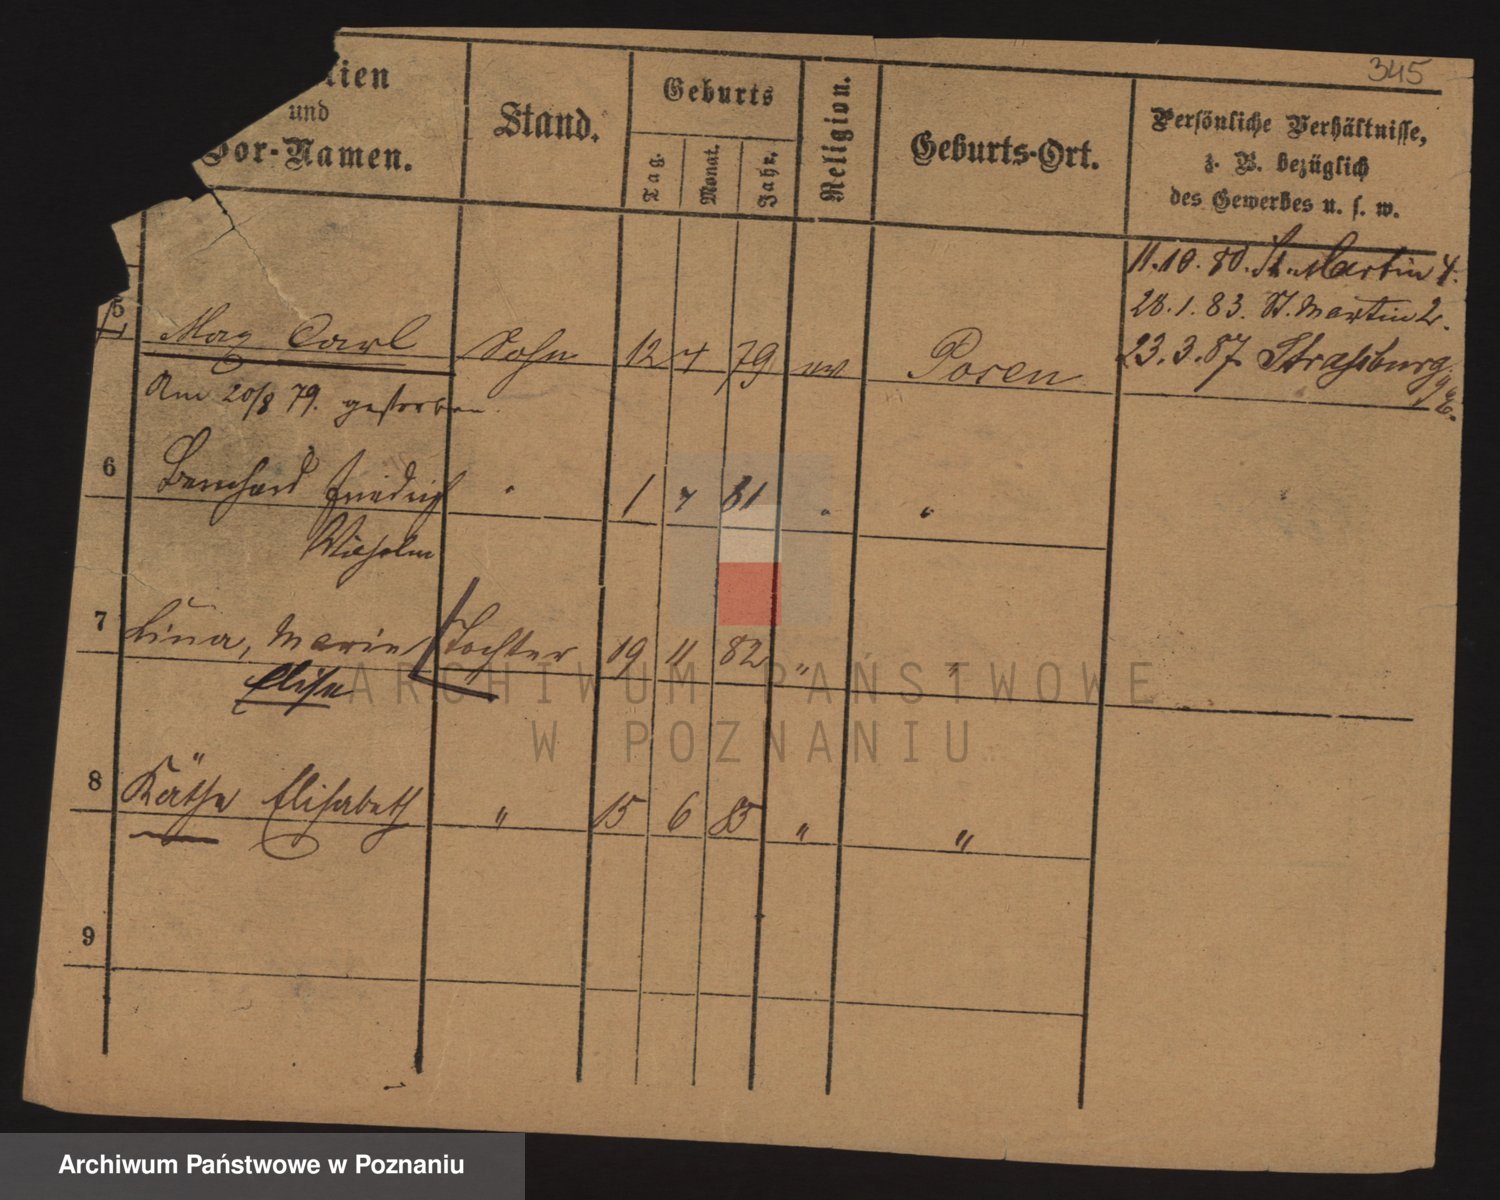 345
lien
und
Vor-Namen.
Stand.
Geburts
Tag.
Monat.
Jahr.
Religion.
Geburts-Ort.
Persönliche Verhältnisse,
z. B. bezüglich
des Gewerbes u. s. w.
11.10.80. St. Martin 4.
28.1.83. St. Martin 2.
23.3.87 Strassburg
i/E.
5 Max Carl Sohn 12 4 79 ev Posen
Am 20/8 79. gestorben.
6 Bernhard Friedrich " 1 7 81 " "
Wilhelm
7 Lina, Marie Tochter 19 11 82 " "
Elise
8 Käthe Elisabeth " 15 6 85 " "
9
ARCHIWUM PAŃSTWOWE
W POZNANIU
Archiwum Państwowe w Poznaniu